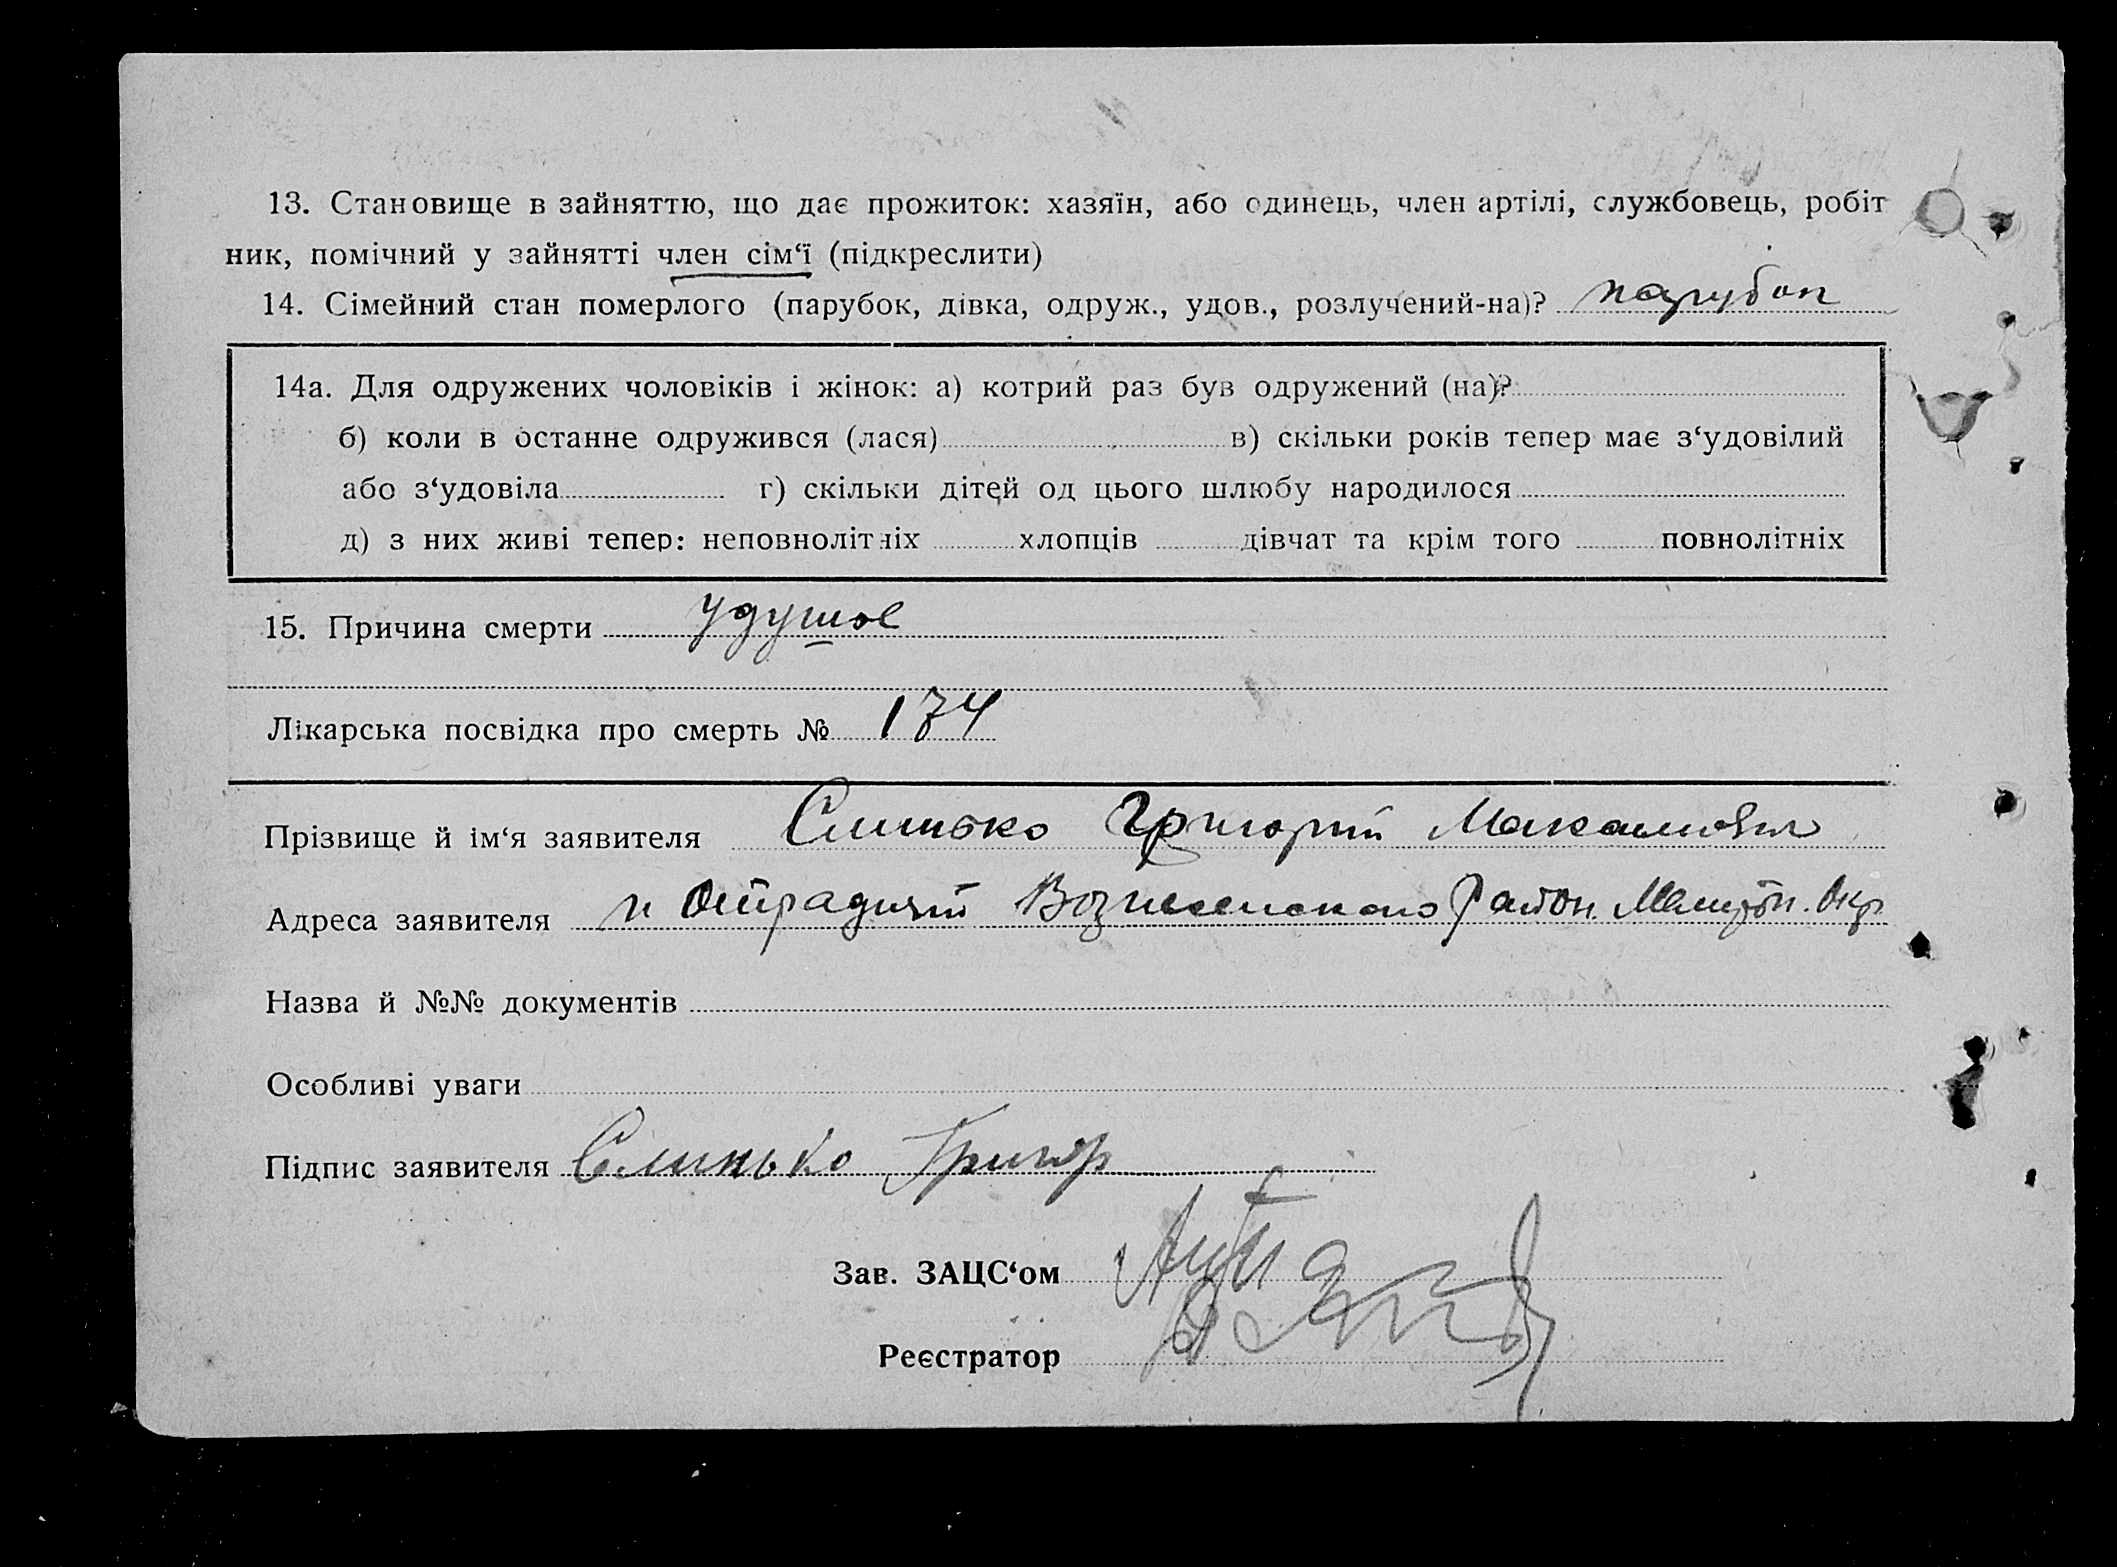 13. Становище в зайняттю, що дає прожиток: хазяїн, або одинець, член артілі, службовець, робіт
ник, помічний у зайнятті член сім‘ї (підкреслити)
14. Сімейний стан померлого (парубок, дівка, одруж., удов., розлучений-на)? парубок
14а. Для одружених чоловіків і жінок: а) котрий раз був одружений (на)?
б) коли в останне одружився (лася) в) скільки років тепер має з‘удовілий
або з‘удовіла г) скільки дітей од цього шлюбу народилося
д) з них живі тепер: неповнолітніх хлопців дівчат та крім того повнолітніх
15. Причина смерти
Лікарська посвідка про смерть № 174
Прізвище й ім‘я заявителя Слинько Григорий
Адреса заявителя Вознесенского Район
Назва й №№ документів
Особливі уваги
Підпис заявителя Слинько Григор
Зав. ЗАЦС‘ом
Реєстратор